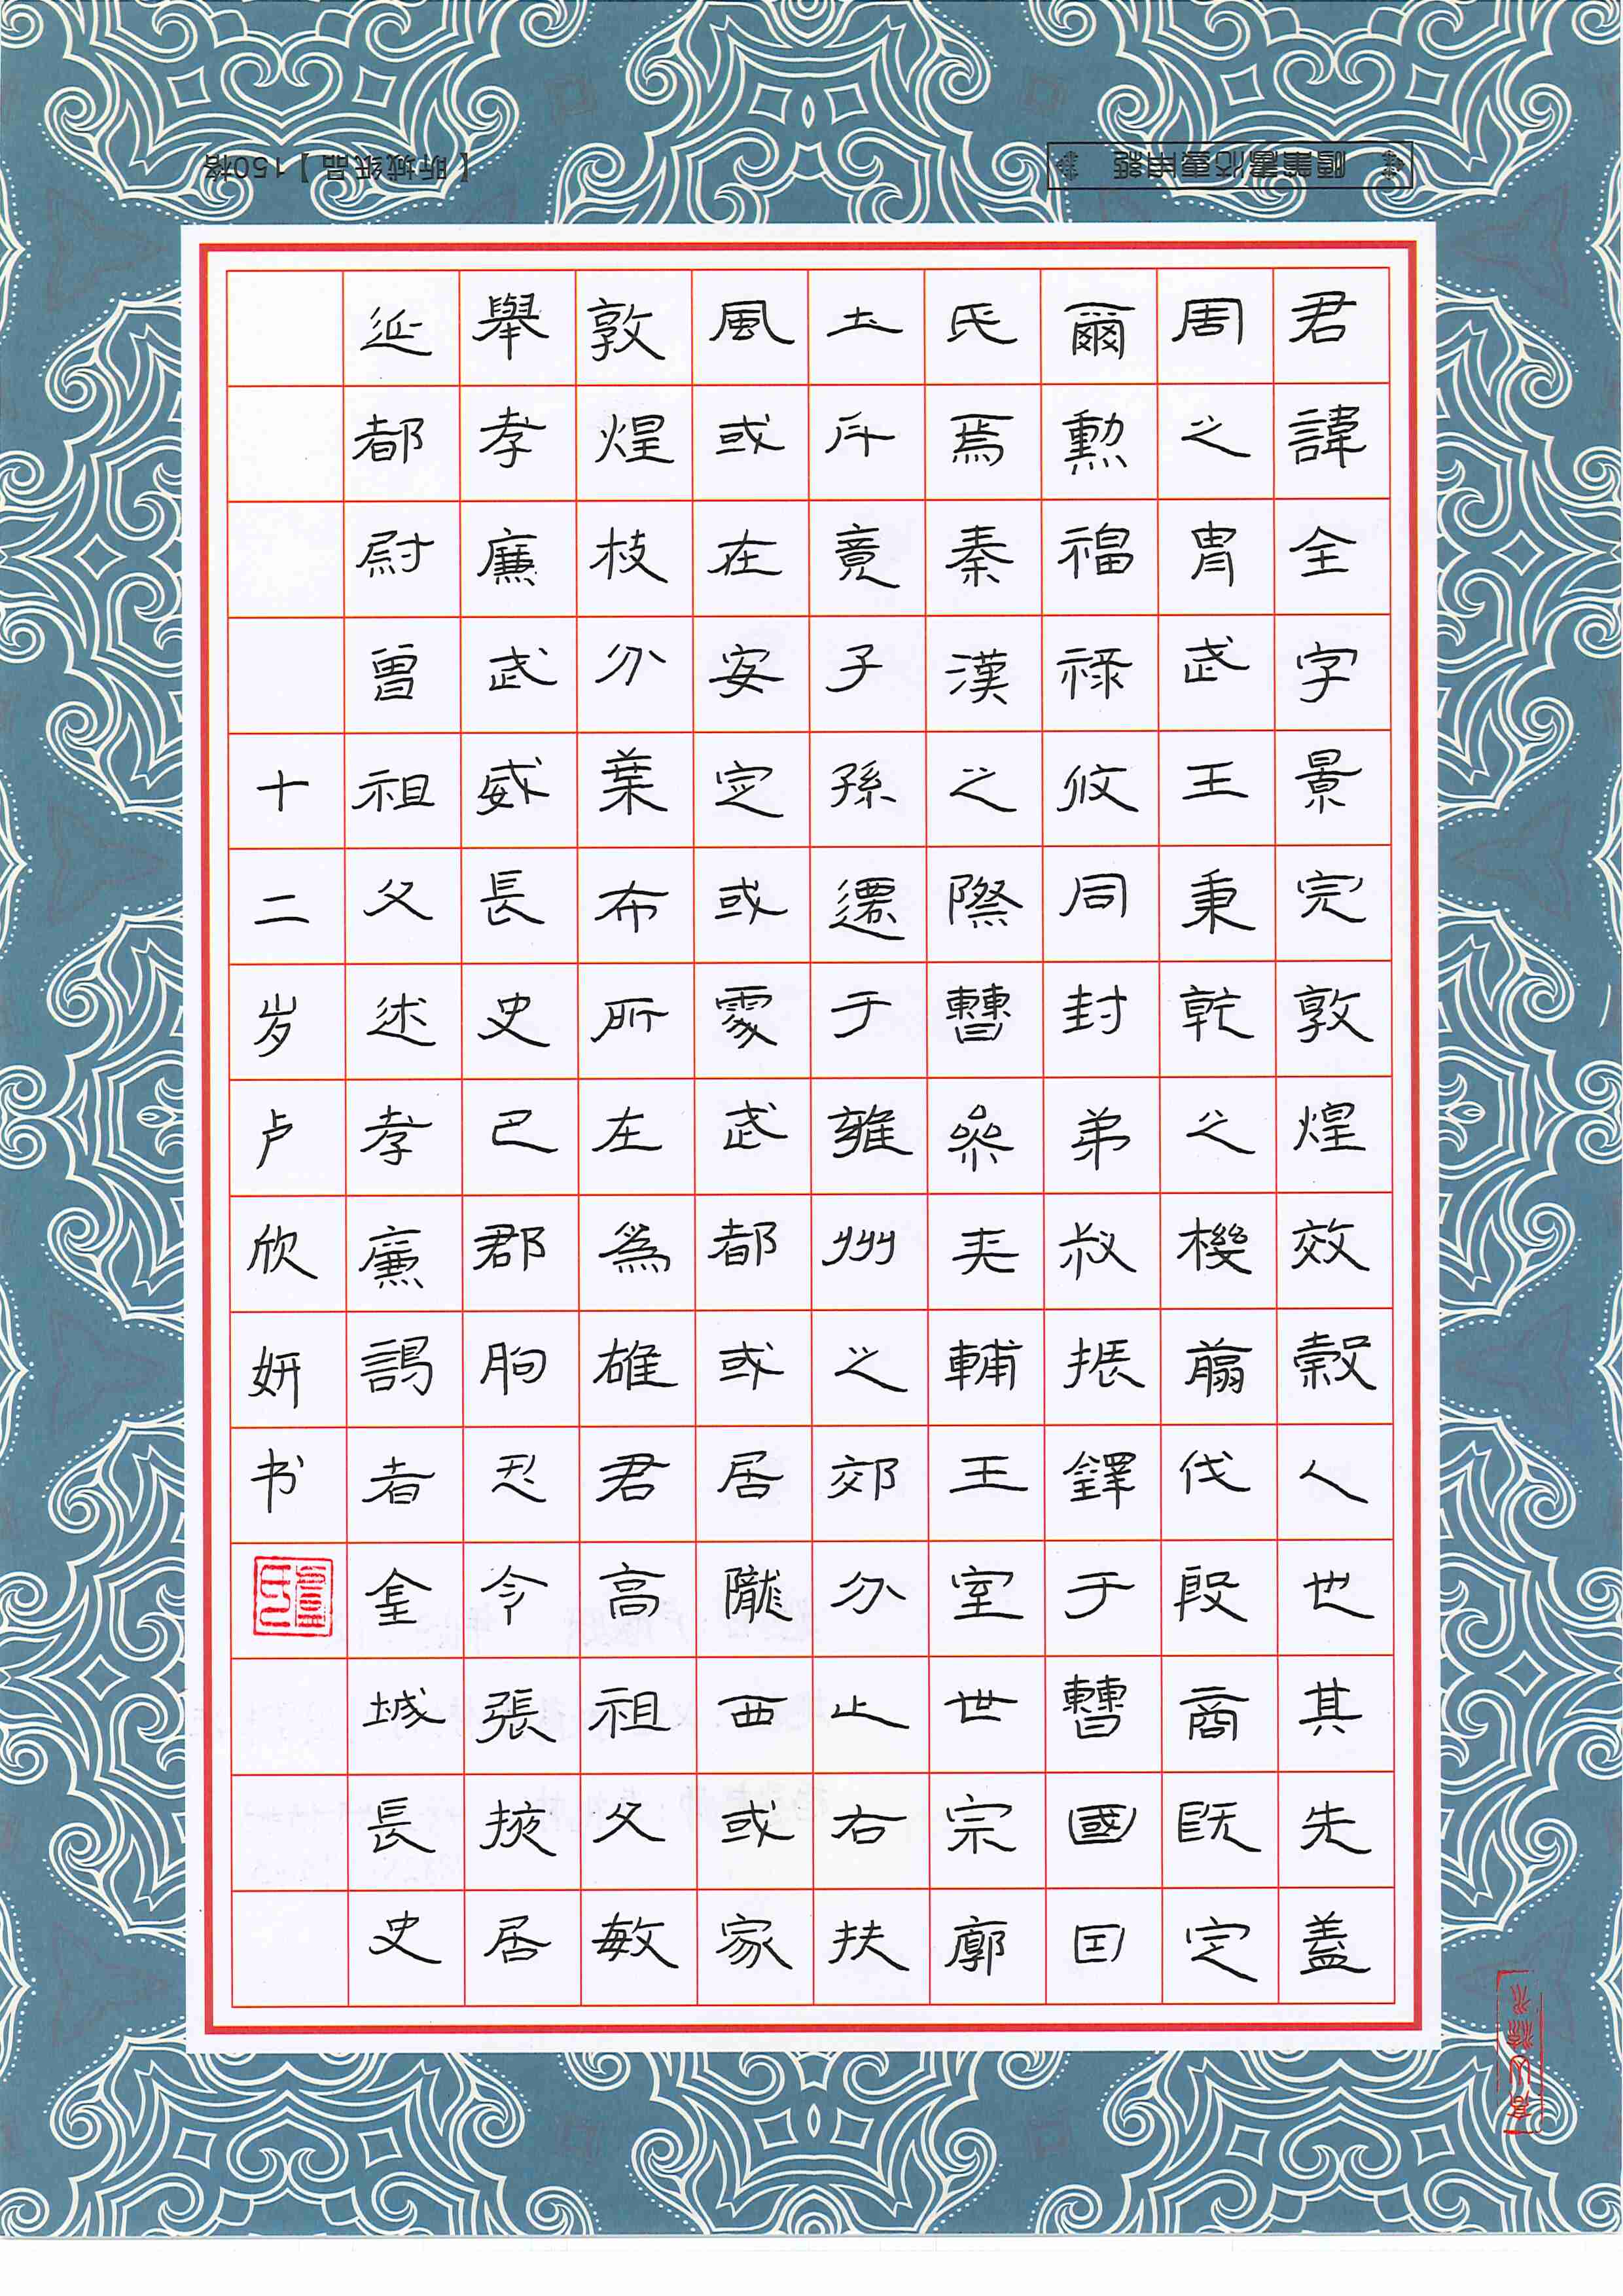 君諱全字景完敦煌效穀人也其先蓋
周之胄武王秉乾之機翦伐殷商既定
爾勲福祿攸同封弟叔振鐸于曹國因
氏焉秦漢之際曹參夾輔王室世宗廓
土斥竟子孫遷于雍州之郊分止右扶
風或在安定或處武都或居隴西或家
敦煌枝分葉布所在為雄君高祖父敏
舉孝廉武威長史巴郡朐忍令張掖居
延都尉曾祖父述孝廉謁者金城長史
十二岁卢欣妍书
【昕城纸品】150格
硬筆書法專用紙
高山流水